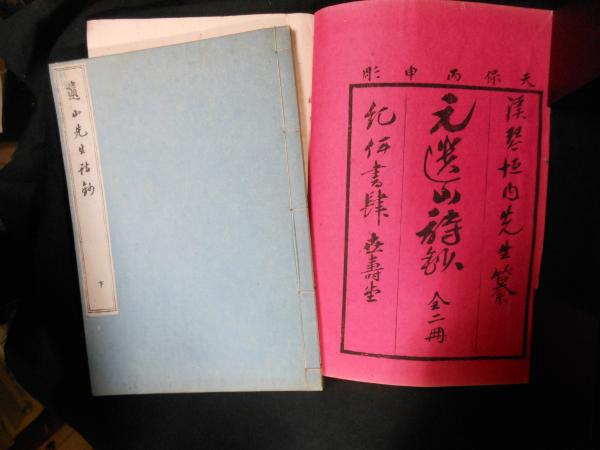 遺山先生詩鈔
下
天保丙申彫
溪琴垣内先生纂
元遺山詩鈔 全二冊
紀伊書肆 世壽堂